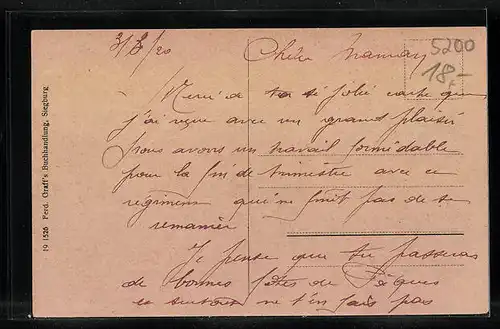 3/3/20
Chère Maman
5200
18,-
Merci de ta si jolie carte que
j'ai reçue avec un grand plaisir
nous avons un travail formidable
pour la fin de trimestre avec ce
régiment qui ne finit pas de se
remanier
Je pense que tu passeras
de bonnes fêtes de Pâques
et surtout ne t'en fais pas
19 1526 Ferd. Graff's Buchhandlung, Siegburg